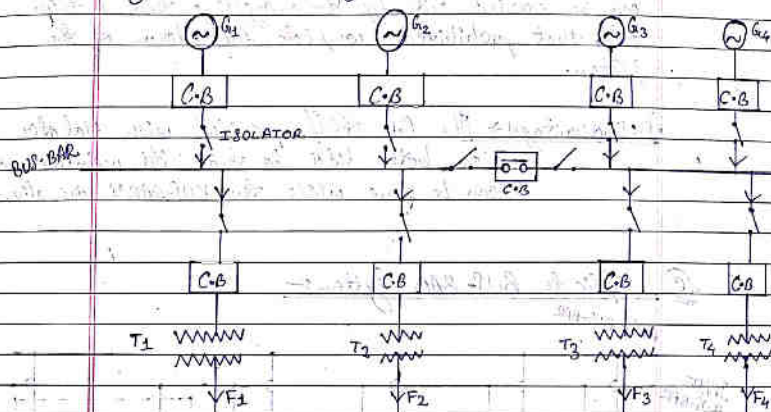 G1 G2 G3 G4
C.B C.B C.B C.B
ISOLATOR
BUS-BAR
C.B
C.B C.B C.B C.B
T1 T2 T3 T4
F1 F2 F3 F4